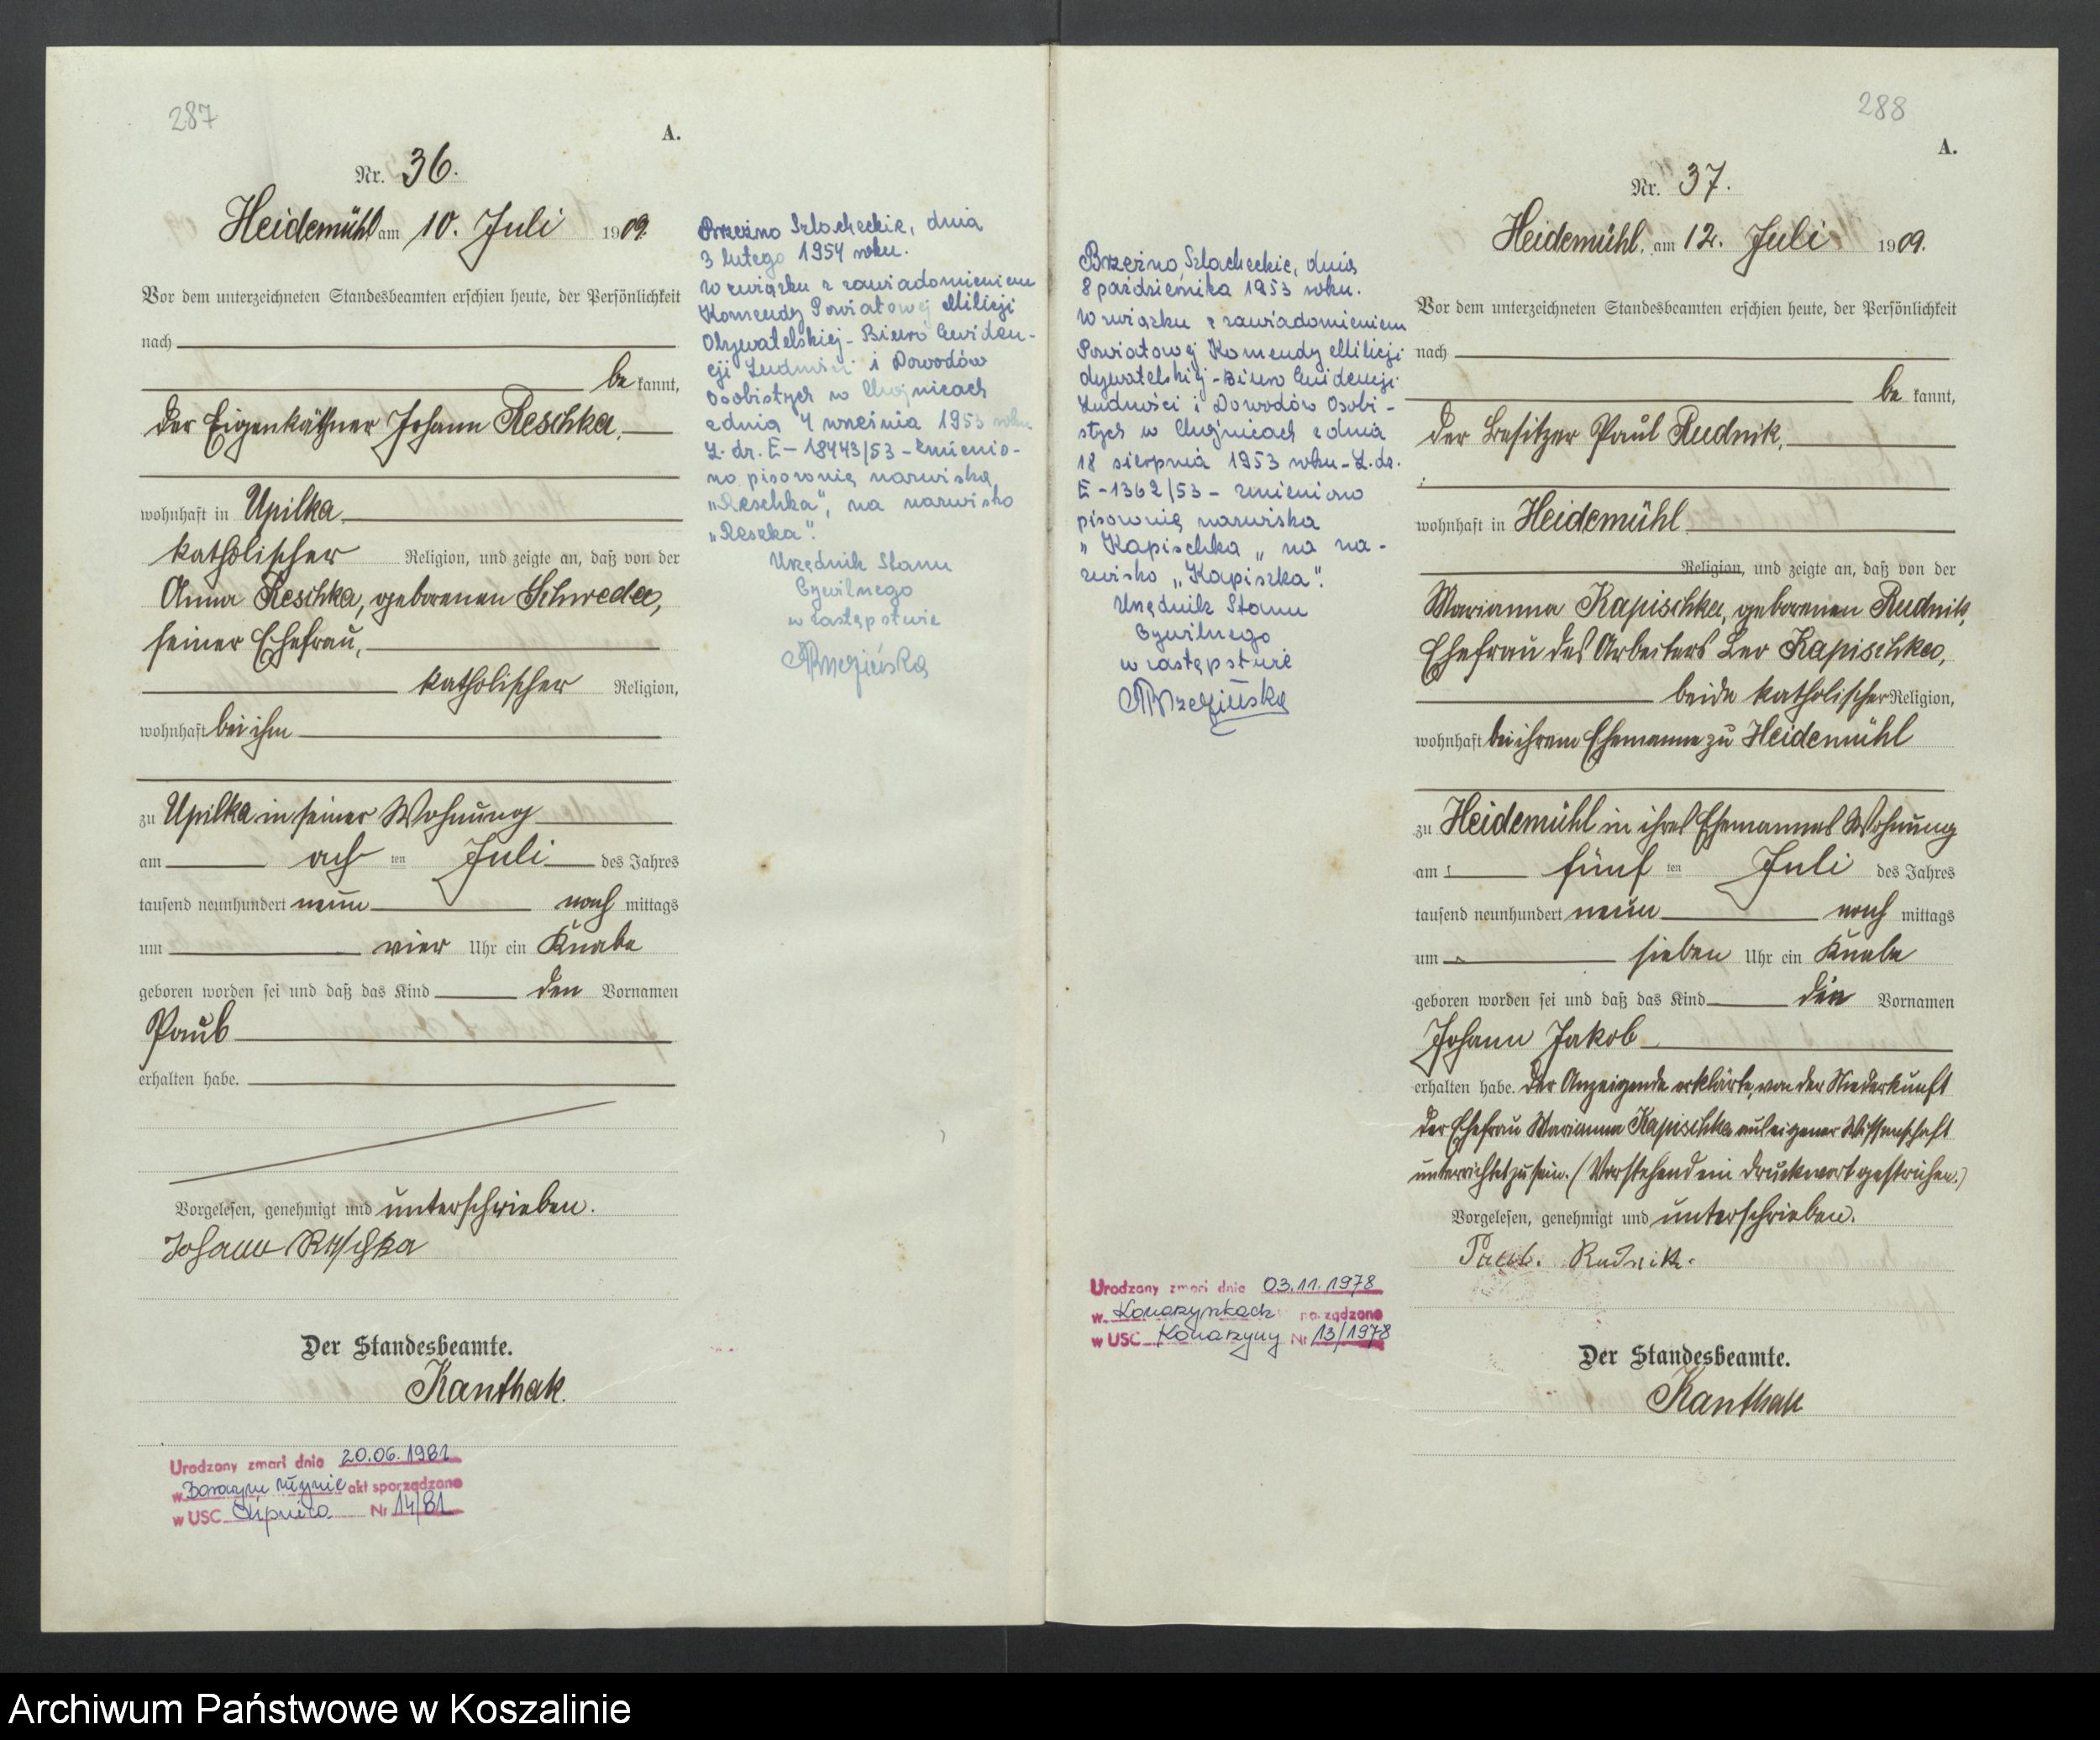 287
A.
Nr. 36.
Heidemühl am 10. Juli 1909.
Vor dem unterzeichneten Standesbeamten erschien heute, der Persönlichkeit
nach
be kannt,
der Eigenkäthner Johann Reschka,
wohnhaft in Upilka
katholischer Religion, und zeigte an, daß von der
Anna Reschka, geborenen Schweda,
seiner Ehefrau,
katholischer Religion,
wohnhaft bei ihm
zu Upilka in seiner Wohnung
am ach ten Juli des Jahres
tausend neunhundert neun nach mittags
um vier Uhr ein Knabe
geboren worden sei und daß das Kind den Vornamen
Paul
erhalten habe.
Vorgelesen, genehmigt und unterschrieben.
Johann Reschka
Der Standesbeamte.
Kanthak.
Urodzony zmarł dnia 20.06.1981
w Borowym Młynie akt sporządzono
w USC Lipnica Nr 14/81
Brzeźno Szlacheckie, dnia
3 lutego 1954 roku.
W związku z zawiadomieniem
Komendy Powiatowej Milicji
Obywatelskiej - Biuro Ewiden-
cji Ludności i Dowodów
Osobistych w Chojnicach
z dnia 4 września 1953 roku
L. dz. E - 18443/53 - zmienio-
no pisownię nazwiska
„Reschka”, na nazwisko
„Reszka”.
Urzędnik Stanu
Cywilnego
w zastępstwie
288
A.
Nr. 37.
Heidemühl, am 12. Juli 1909.
Vor dem unterzeichneten Standesbeamten erschien heute, der Persönlichkeit
nach
be kannt,
der Besitzer Paul Rudnik,
wohnhaft in Heidemühl
Religion, und zeigte an, daß von der
Marianna Kapischka, geborenen Rudnik,
Ehefrau des Arbeiters Leo Kapischka,
beide katholischer Religion,
wohnhaft bei ihrem Ehemanne zu Heidemühl
zu Heidemühl in ihres Ehemannes Wohnung
am fünf ten Juli des Jahres
tausend neunhundert neun nach mittags
um sieben Uhr ein Knabe
geboren worden sei und daß das Kind die Vornamen
Johann Jakob
erhalten habe. Der Anzeigende erklärte, von der Niederkunft
der Ehefrau Marianna Kapischka aus eigener Wissenschaft
unterrichtet zu sein. (Vorstehend ein Druckwort gestrichen.)
Vorgelesen, genehmigt und unterschrieben.
Paul. Rudnik.
Der Standesbeamte.
Kanthak
Brzeźno Szlacheckie, dnia
8 października 1953 roku.
W związku z zawiadomieniem
Powiatowej Komendy Milicji
Obywatelskiej - Biuro Ewidencji
Ludności i Dowodów Osobi-
stych w Chojnicach z dnia
18 sierpnia 1953 roku - L. dz.
E - 1362/53 - zmieniono
pisownię nazwiska
„Kapischka„ na na-
zwisko „Kapiszka”.
Urzędnik Stanu
Cywilnego
w zastępstwie
Urodzony zmarł dnia 03.11.1978
w Konarzynkach sporządzono
w USC Konarzyny Nr 13/1978
Archiwum Państwowe w Koszalinie